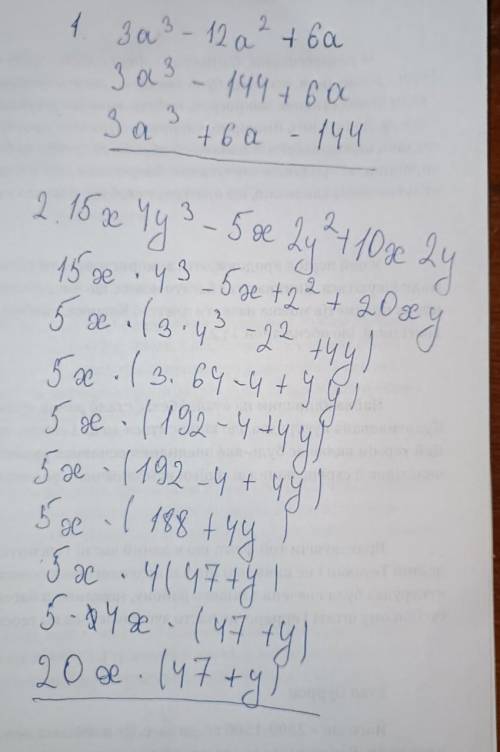 1. 3a³ - 12a² + 6a
3a³ - 144 + 6a
3a³ + 6a - 144
2. 15x 4y³ - 5x 2y² + 10x 2y
15x · 4³ - 5x + 2² + 20xy
5x · (3 · 4³ - 2² + 4y)
5x · (3 · 64 - 4 + 4y)
5x · (192 - 4 + 4y)
5x · (192 - 4 + 4y)
5x · (188 + 4y)
5x · 4(47 + y)
5 · 4x · (47 + y)
20x · (47 + y)